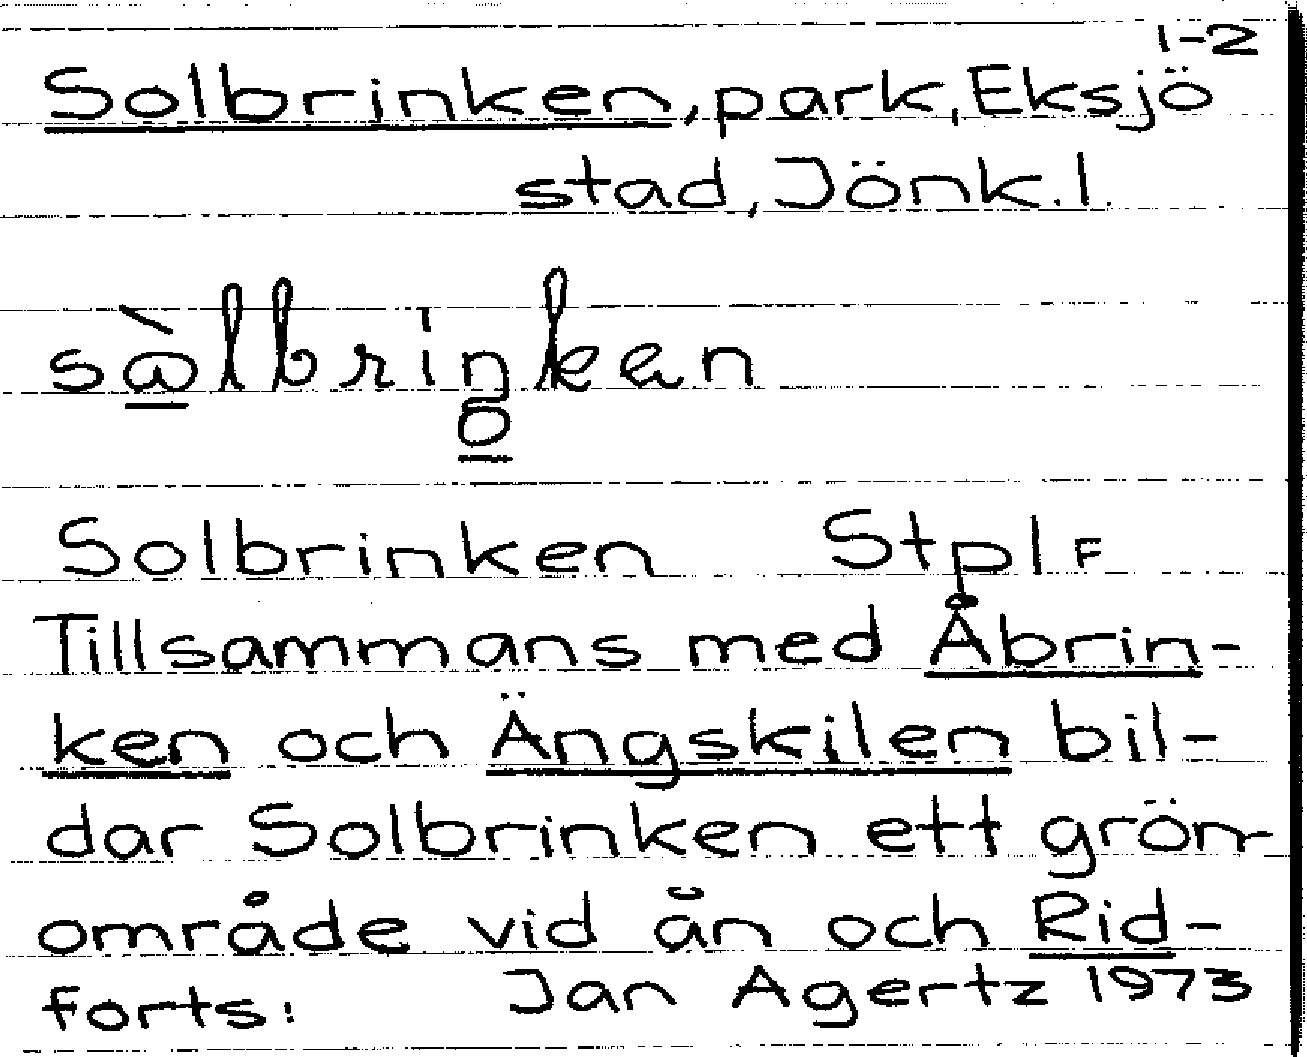 1-2
Solbrinken, park, Eksjö
stad, Jönk. l.
sὰlbriŋken
Solbrinken Stpl F
Tillsammans med Åbrin-
ken och Ängskilen bil-
dar Solbrinken ett grön-
område vid ån och Rid-
forts: Jan Agertz 1973